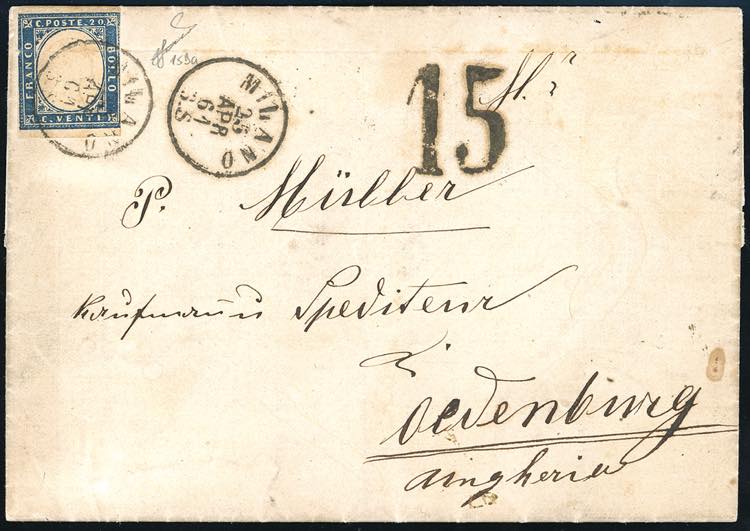 C. POSTE. 20.
FRANCO
BOLLO
C. VENTI
MILANO
APR
61
MILANO
25
APR
61
3.S
15
P. Müller
Kaufmann u Spediteur
Oedenburg
Ungheria